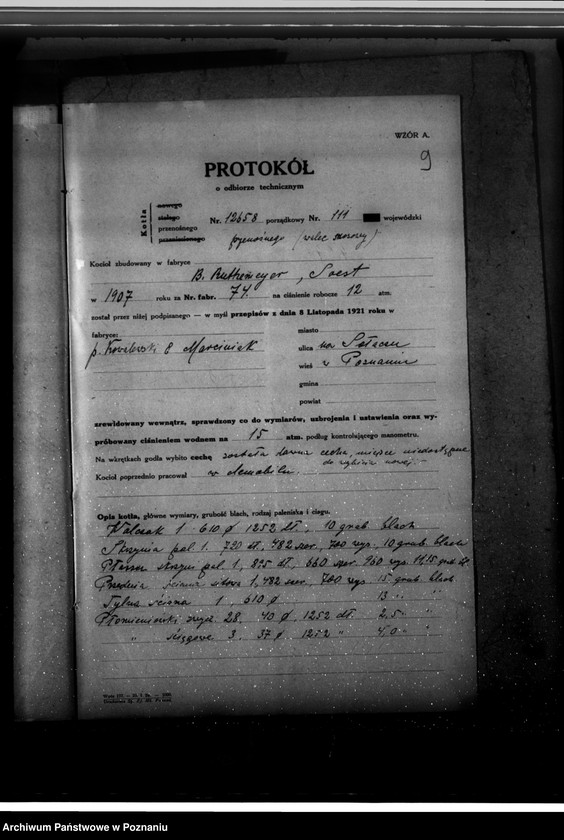 WZÓR A.
9
PROTOKÓŁ
o odbiorze technicznym
Kotła
nowego
stałego
przenośnego
Nr. 12658 porządkowy Nr. 111 wojewódzki
przenośnego (walec szosowy)
Kocioł zbudowany w fabryce
B. Ruthemeyer, Soest
w 1907 roku za Nr. fabr. 74. na ciśnienie robocze 12 atm.
został przez niżej podpisanego — w myśl przepisów z dnia 8 Listopada 1921 roku w
fabryce:
miasto
p. Kowalewski & Marciniak
ulica na Sołaczu
wieś w Poznaniu
gmina
powiat
zrewidowany wewnątrz, sprawdzony co do wymiarów, uzbrojenia i ustawienia oraz wy-
próbowany ciśnieniem wodnem na 15 atm. podług kontrolującego manometru.
Na wkrętkach godła wybito cechę została dawna cecha, miejsce niedostępne
do wybicia nowej.—
Kocioł poprzednio pracował
Opis kotła, główne wymiary, grubość blach, rodzaj paleniska i ciągu.
Walczak 1 610 ø 1252 dł. 10 grub. blach
Skrzynia pal 1. 720 dł. 482 szer. 700 wys. 10 grub. blach
Płaszcz skrzyni pal 1, 825 dł. 660 szer. 960 wys.
Przednia ściana sitowa 1, 482 szer. 700 wys 15 grub. blach
Tylna ściana 1 610 ø 13 " "
Płomieniówki zwyż 28. 40 ø 1252 dł. 2,5 " "
" ściągowe 3. 37 ø 1252 " 4,0 " "